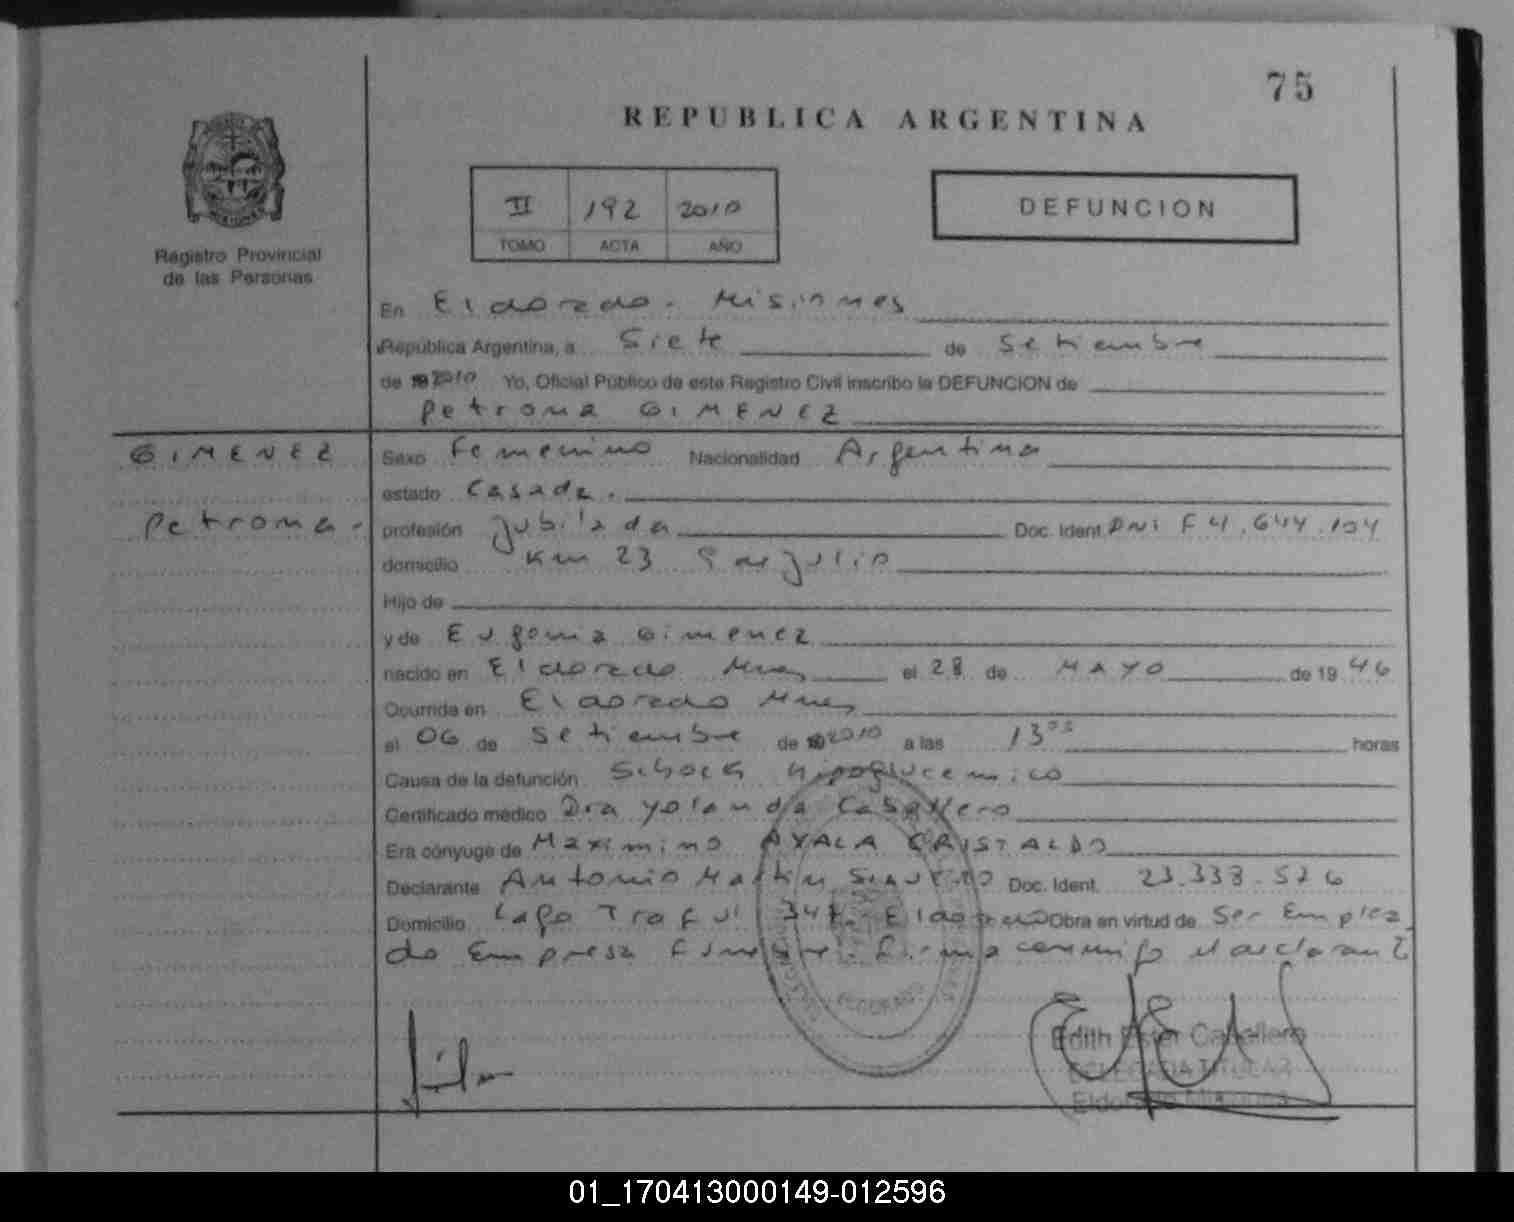 75
REPUBLICA ARGENTINA
II 192 2010
TOMO ACTA AÑO
DEFUNCION
Registro Provincial
de las Personas
En Eldorado. Misiones
República Argentina, a Siete de Setiembre
de 2010 Yo, Oficial Público de este Registro Civil inscribo la DEFUNCION de
Petrona GIMENEZ
GIMENEZ
Petrona.
Sexo Femenino Nacionalidad Argentina
estado Casada.
profesión Jubilada Doc. Ident. DNI F 4.644.104
domicilio Km 23
Hijo de
y de Eugenia Gimenez
nacido en Eldorado Mnes el 28 de MAYO de 19 46
Ocurrida en Eldorado Mnes
el 06 de Setiembre de 2010 a las 13 horas
Causa de la defunción Schock hipoglucemico
Certificado médico Dra Yolanda Caballero
Era cónyuge de Maximino AYALA CRISTALDO
Declarante Antonio Martin Doc. Ident. 23.338.526
Domicilio Lago Traful Eldorado Obra en virtud de Ser Emplea
do Empresa Funebre. Firma conmigo el declarante
ELDORADO
Edith Ester Caballero
DELEGADA TITULAR
Eldorado Misiones
01_170413000149-012596